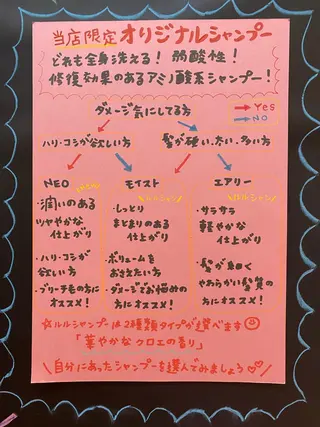 当店限定 オリジナルシャンプー
どれも全身洗える！ 弱酸性！
修復効果のあるアミノ酸系シャンプー！
ダメージ気にしてる方
→ Yes
→ NO
ハリ・コシが欲しい方
髪が硬い、太い、多い方
NEO
・潤いのある
ツヤやかな
仕上がり
・ハリ・コシが
欲しい方
・ブリーチ毛の方に
オススメ！
モイスト
・しっとり
まとまりのある
仕上がり
・ボリュームを
おさえたい方
・ダメージでお悩みの
方にオススメ！
エアリー
・サラサラ
軽やかな
仕上がり
・髪が細く
やわらかい髪質の
方にオススメ！
☆ルルシャンプーは2種類タイプが選べます
「華やかなクロエの香り」
\自分にあったシャンプーを選んでみましょう♡♡/